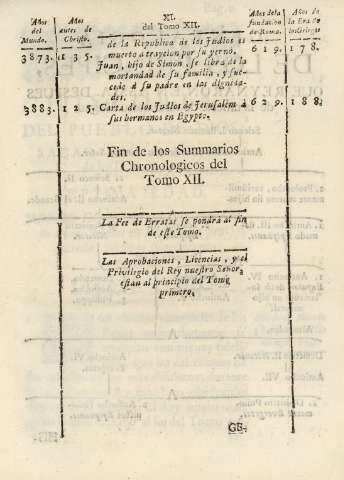 XI.
del Tomo XII.
Años del Mundo.
Años antes de Christo.
Años de la fundacion de Roma.
Años de la Era de los Griegos
3873. 135. de la Republica de los Judios es 619. 178.
muerto a traycion por su yerno,
Juan, hijo de Simón, se libra de la
mortandad de su familia, y suc-
cede à su padre en las dignida-
des.
3883. 125. Carta de los Judios de Jerusalém à 629. 188.
sus hermanos en Egypto.
Fin de los Summarios
Chronologicos del
Tomo XII.
La Fee de Erratas se pondrá al fin
de este Tomo.
Las Aprobaciones, Licencias, y el
Privilegio del Rey nuestro Señor,
estan al principio del Tomo
primero.